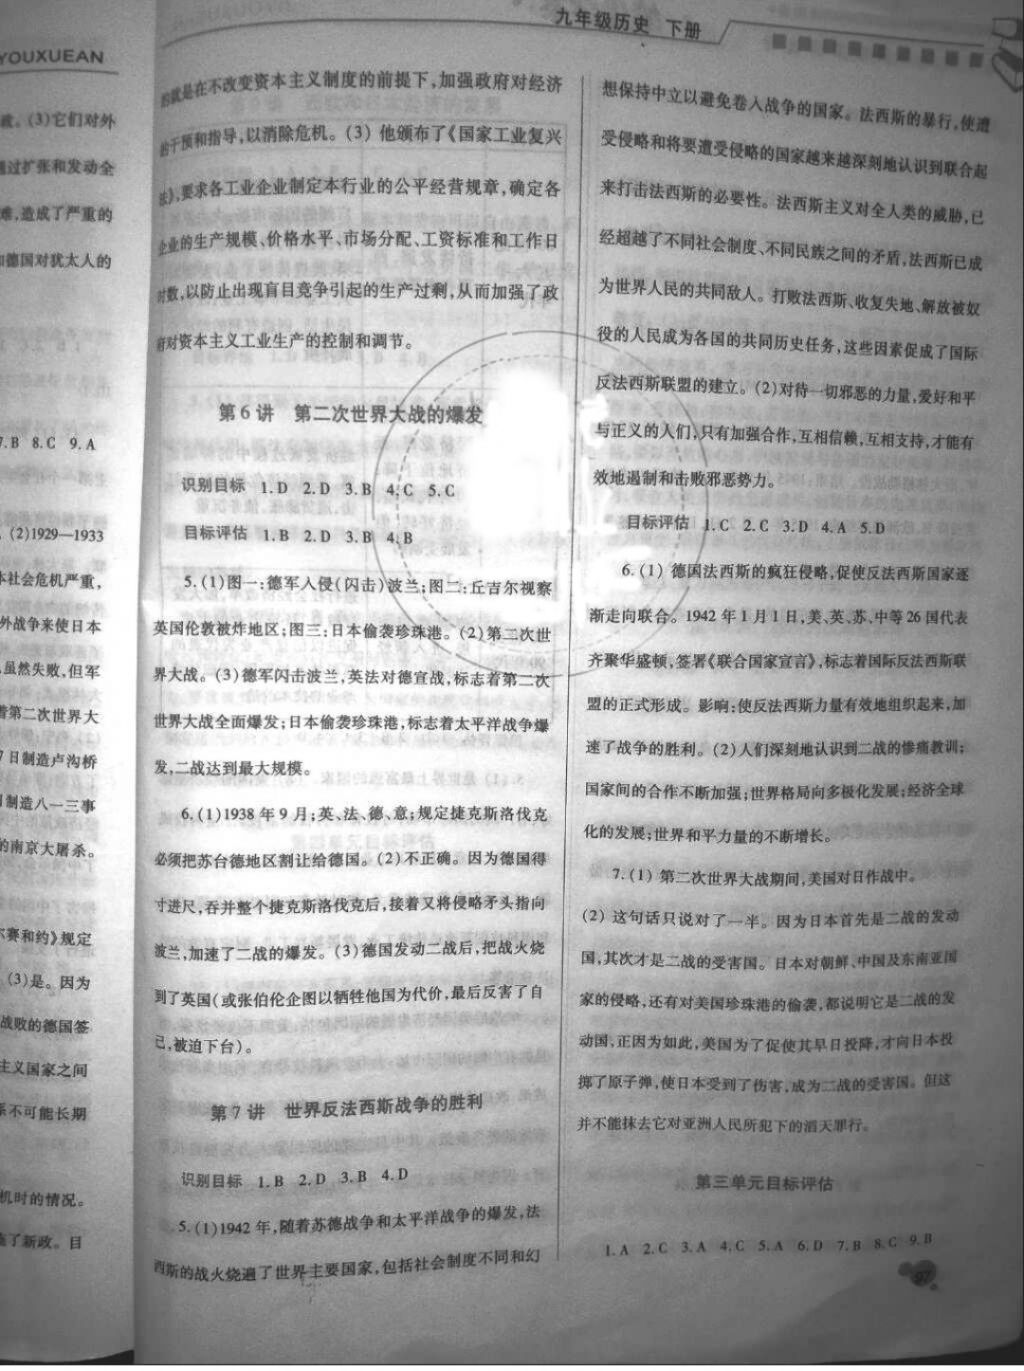 YOUXUEAN
(3)它们对外
通过扩张和发动全
难,造成了严重的
和德国对犹太人的
7.B 8.C 9.A
(2)1929—1933
本社会危机严重,
外战争来使日本
虽然失败,但军
着第二次世界大
7日制造卢沟桥
制造八一三事
的南京大屠杀。
尔赛和约》规定
(3)是。因为
战败的德国签
主义国家之间
系不可能长期
机时的情况。
施了新政。目
九年级历史 下册
的就是在不改变资本主义制度的前提下,加强政府对经济
的干预和指导,以消除危机。(3) 他颁布了《国家工业复兴
法》,要求各工业企业制定本行业的公平经营规章,确定各
企业的生产规模、价格水平、市场分配、工资标准和工作日
时数,以防止出现盲目竞争引起的生产过剩,从而加强了政
府对资本主义工业生产的控制和调节。
第6讲 第二次世界大战的爆发
识别目标 1.D 2.D 3.B 4.C 5.C
目标评估 1.B 2.D 3.B 4.B
5.(1)图一:德军入侵(闪击)波兰;图二:丘吉尔视察
英国伦敦被炸地区;图三:日本偷袭珍珠港。(2)第二次世
界大战。(3)德军闪击波兰,英法对德宣战,标志着第二次
世界大战全面爆发;日本偷袭珍珠港,标志着太平洋战争爆
发,二战达到最大规模。
6.(1)1938年9月;英、法、德、意;规定捷克斯洛伐克
必须把苏台德地区割让给德国。(2)不正确。因为德国得
寸进尺,吞并整个捷克斯洛伐克后,接着又将侵略矛头指向
波兰,加速了二战的爆发。(3)德国发动二战后,把战火烧
到了英国(或张伯伦企图以牺牲他国为代价,最后反害了自
己,被迫下台)。
第7讲 世界反法西斯战争的胜利
识别目标 1.B 2.D 3.B 4.D
5.(1)1942年,随着苏德战争和太平洋战争的爆发,法
西斯的战火烧遍了世界主要国家,包括社会制度不同和幻
想保持中立以避免卷入战争的国家。法西斯的暴行,使遭
受侵略和将要遭受侵略的国家越来越深刻地认识到联合起
来打击法西斯的必要性。法西斯主义对全人类的威胁,已
经超越了不同社会制度、不同民族之间的矛盾,法西斯已成
为世界人民的共同敌人。打败法西斯、收复失地、解放被奴
役的人民成为各国的共同历史任务,这些因素促成了国际
反法西斯联盟的建立。(2)对待一切邪恶的力量,爱好和平
与正义的人们,只有加强合作,互相信赖,互相支持,才能有
效地遏制和击败邪恶势力。
目标评估 1.C 2.C 3.D 4.A 5.D
6.(1) 德国法西斯的疯狂侵略,促使反法西斯国家逐
渐走向联合。1942年1月1日,美、英、苏、中等26国代表
齐聚华盛顿,签署《联合国家宣言》,标志着国际反法西斯联
盟的正式形成。影响:使反法西斯力量有效地组织起来,加
速了战争的胜利。(2)人们深刻地认识到二战的惨痛教训;
国家间的合作不断加强;世界格局向多极化发展;经济全球
化的发展;世界和平力量的不断增长。
7.(1) 第二次世界大战期间,美国对日作战中。
(2) 这句话只说对了一半。因为日本首先是二战的发动
国,其次才是二战的受害国。日本对朝鲜、中国及东南亚国
家的侵略,还有对美国珍珠港的偷袭,都说明它是二战的发
动国,正因为如此,美国为了促使其早日投降,才向日本投
掷了原子弹,使日本受到了伤害,成为二战的受害国。但这
并不能抹去它对亚洲人民所犯下的滔天罪行。
第三单元目标评估
1.A 2.C 3.A 4.C 5.A 6.D 7.B 8.C 9.B
97